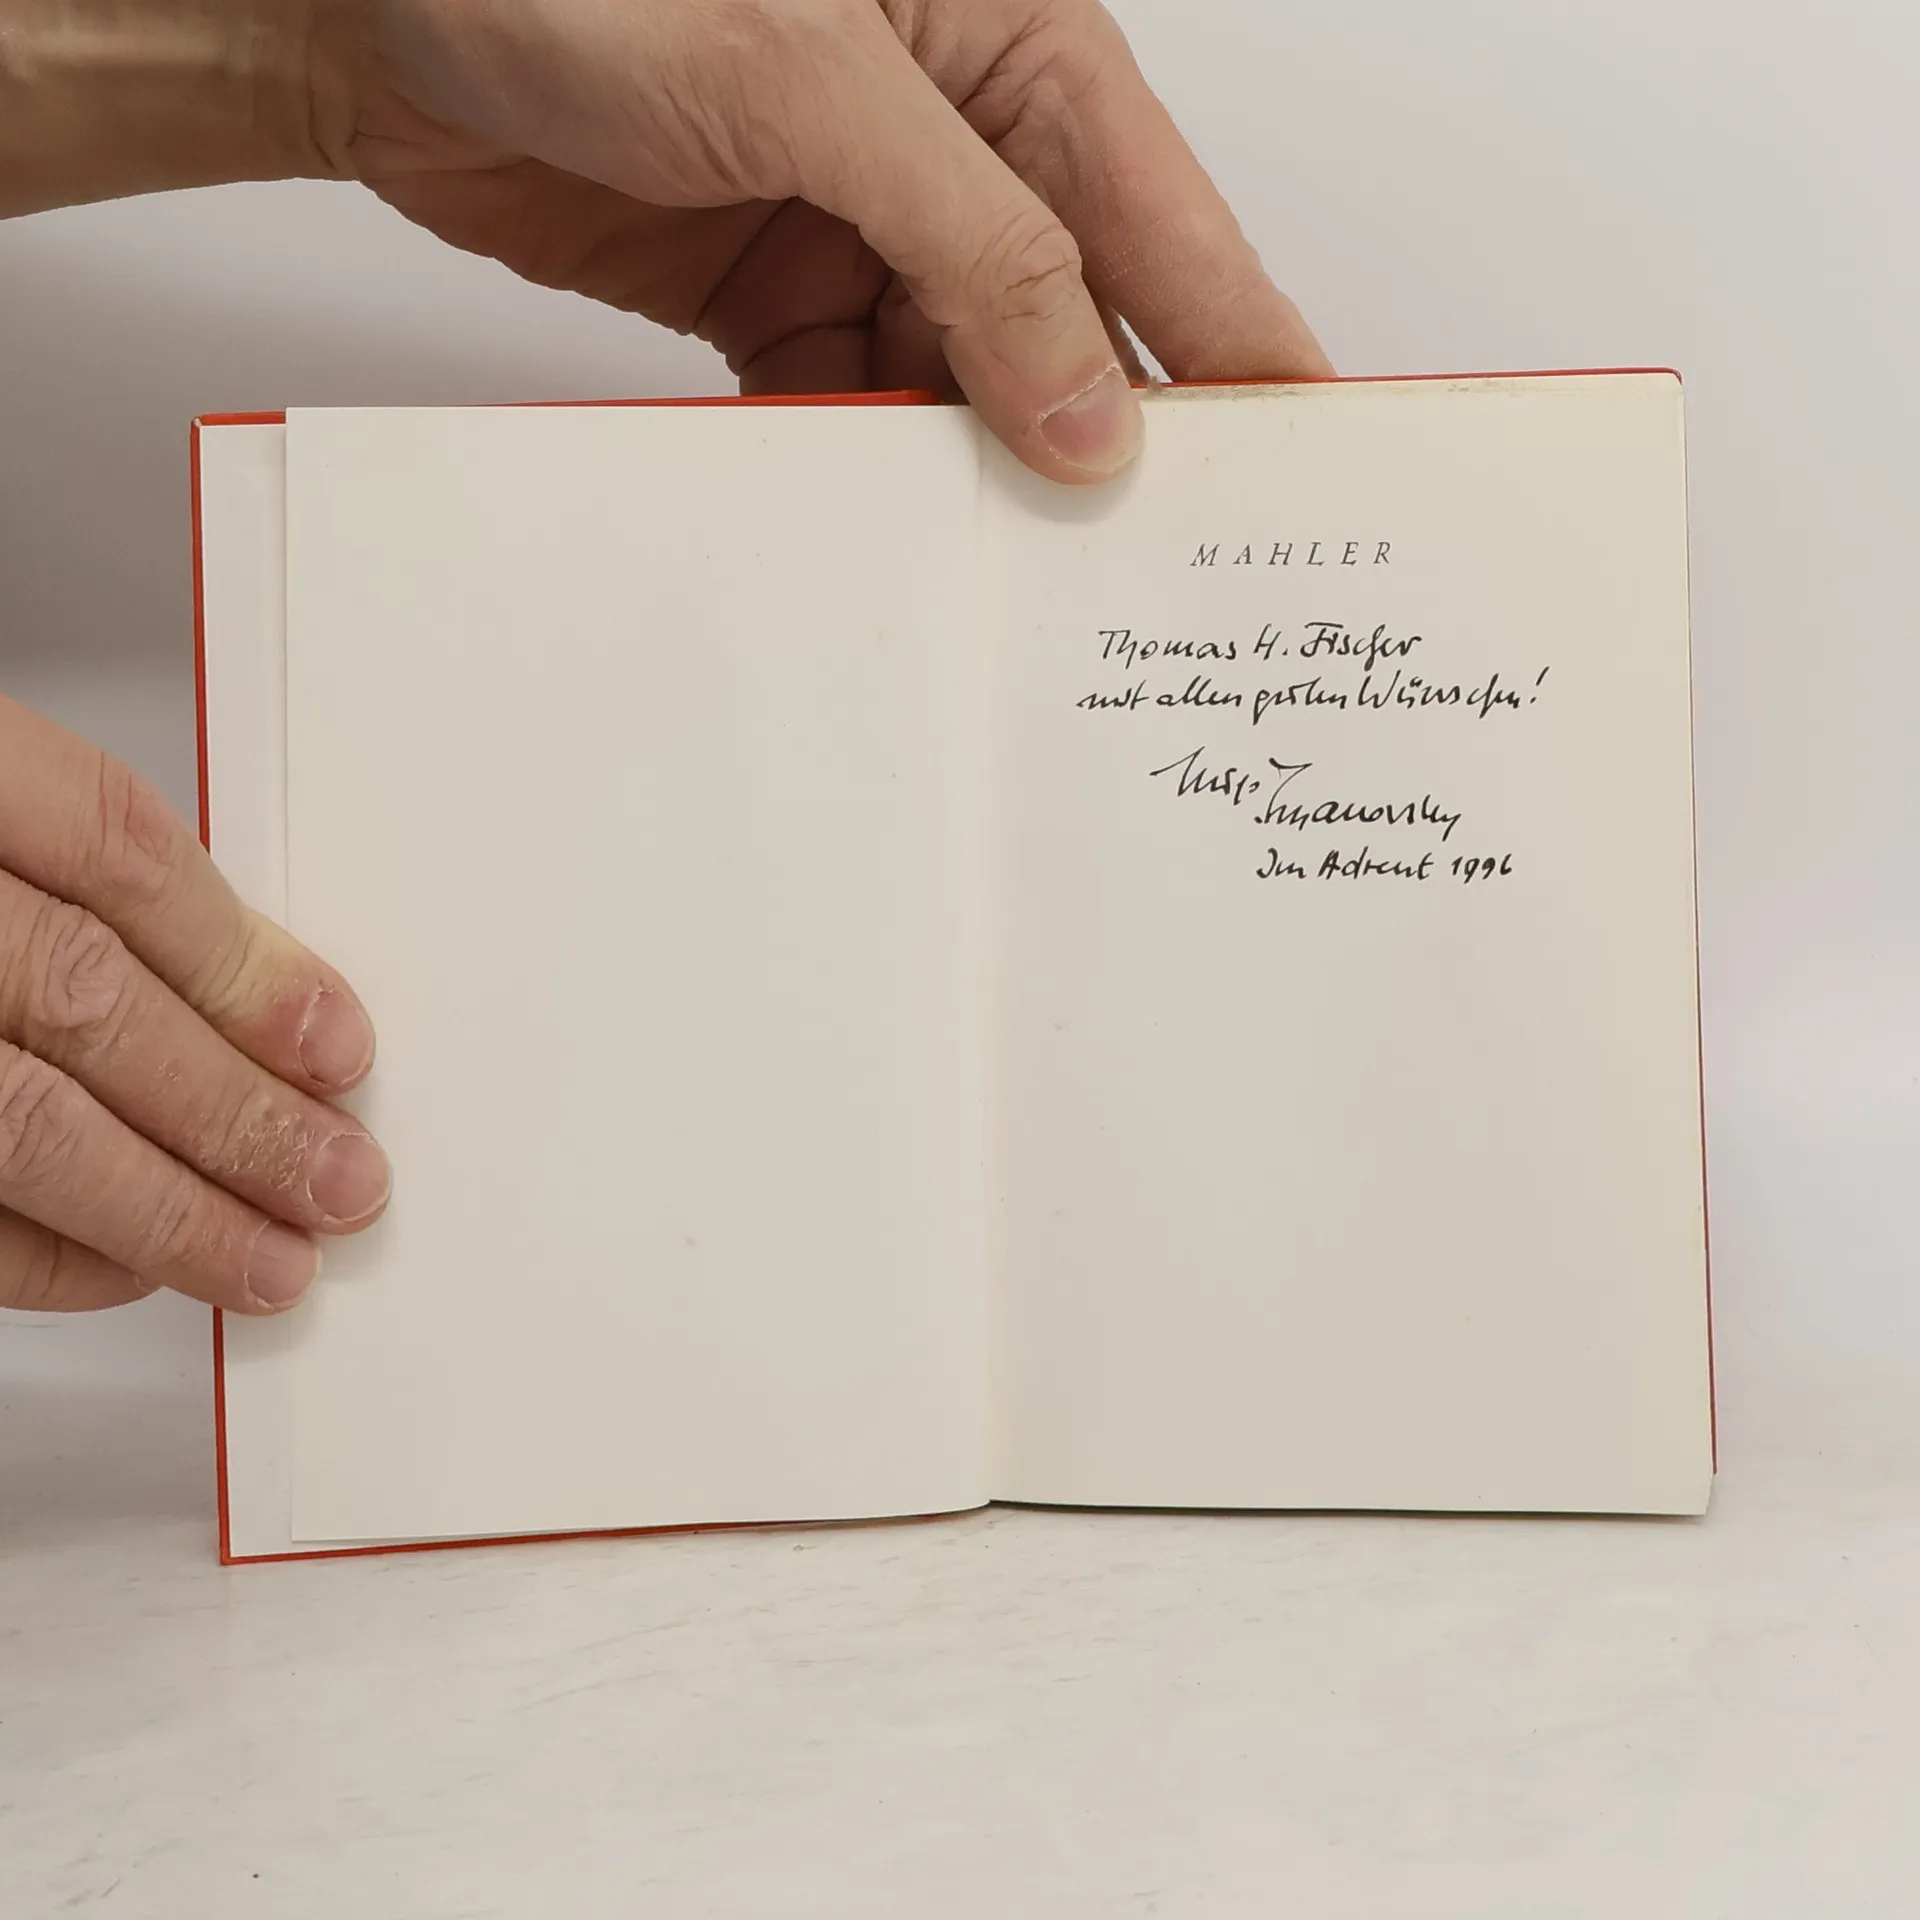 MAHLER
Thomas H. Fischer
mit allen guten Wünschen!
Im Advent 1996